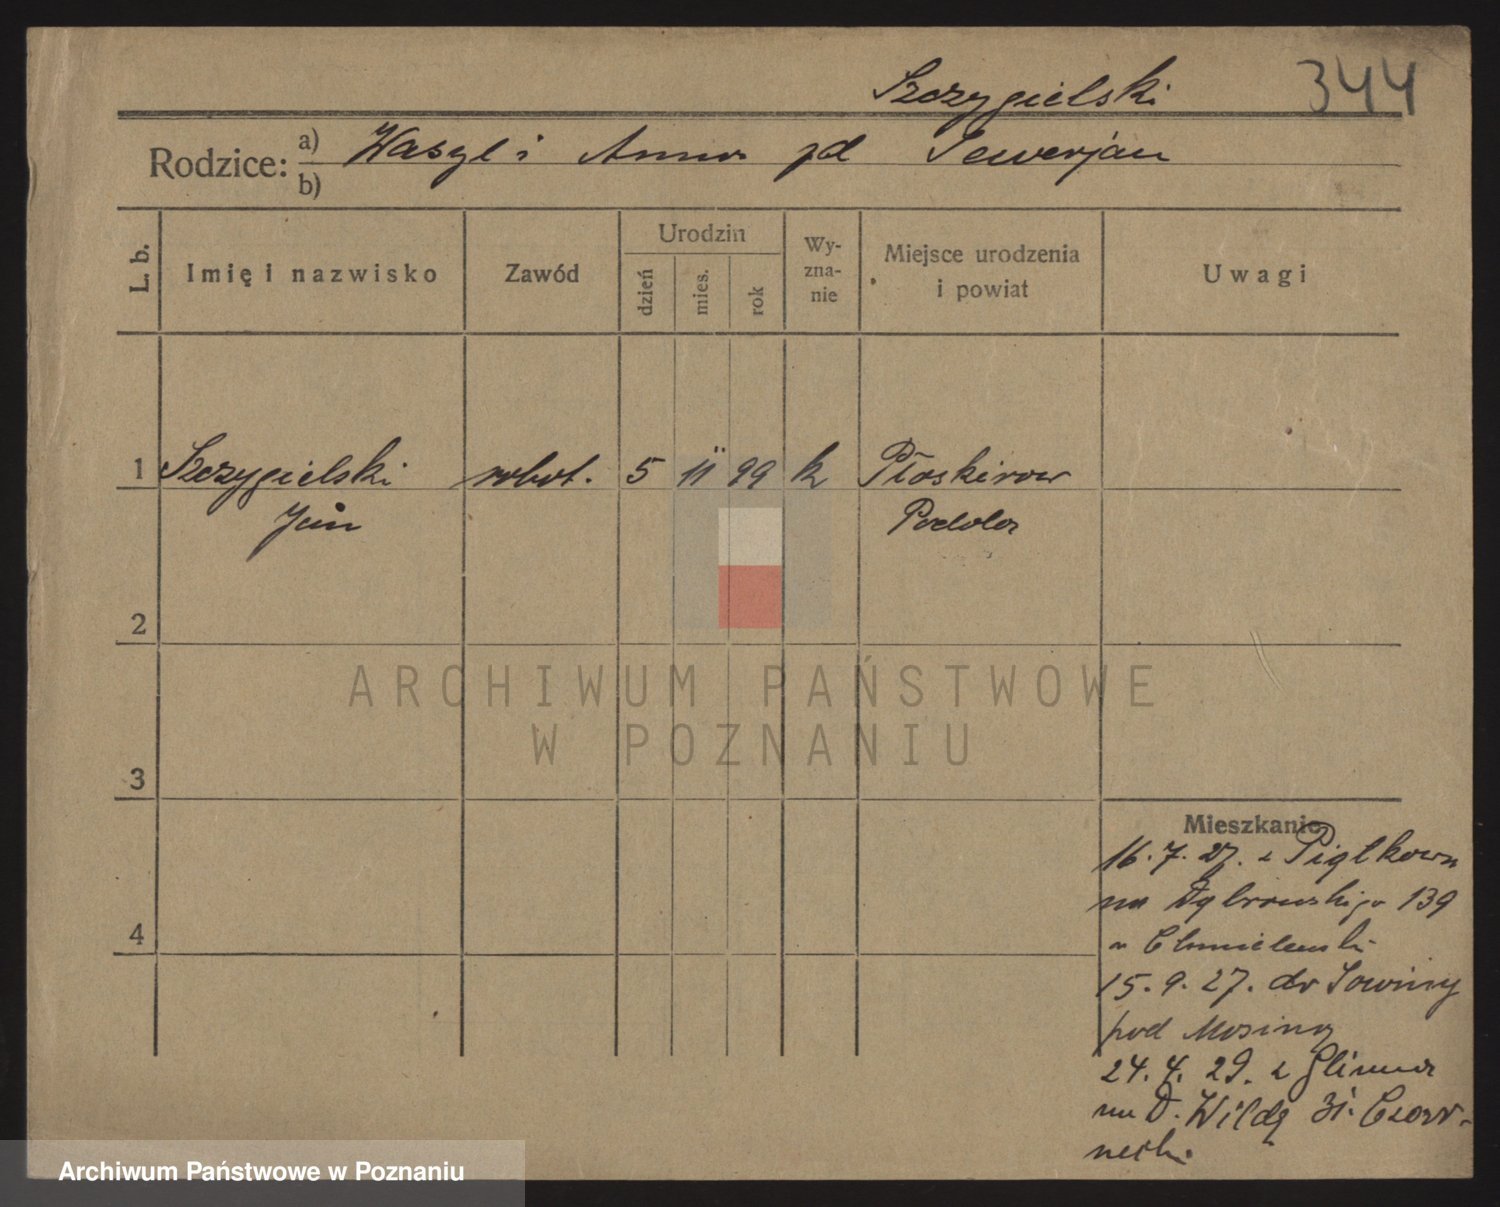 Szczygielski 344
Rodzice: a) Wasyl i Anna zd Sewerjan
b)
L. b. Imię i nazwisko Zawód Urodzin dzień mies. rok Wy-zna-nie Miejsce urodzenia i powiat Uwagi
1 Szczygielski robot. 5 11 99 k Płoskirow
Jan Podola
2
ARCHIWUM PAŃSTWOWE
W POZNANIU
3
Mieszkanie
16.7.27. z Piątkowa
na Dąbrowskiego 139
u Chmielewski
4
15.9.27. do Sowiny
pod Mosiną
24.4.29. z Glinna
na D. Wildą 31. Czar-
necki
Archiwum Państwowe w Poznaniu